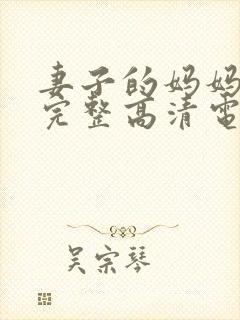 妻子的妈妈
完整高清电
吴宗琴